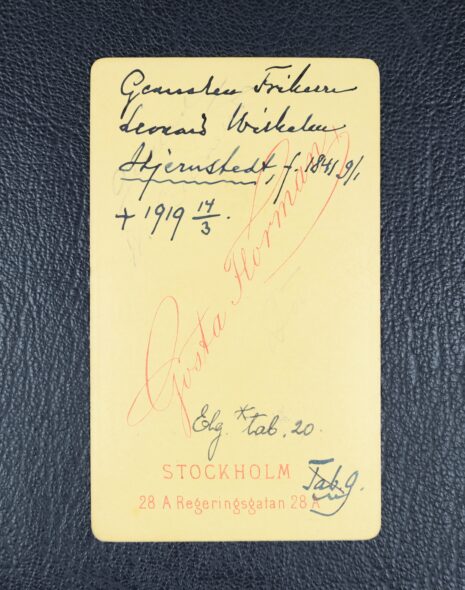 Friherre
Leonard Wilhelm
Stjernstedt, f. 1841 9/1
+ 1919 14/3.
Gösta Florman
Elg. * tab. 20.
STOCKHOLM
Tab 9.
28 A Regeringsgatan 28 A